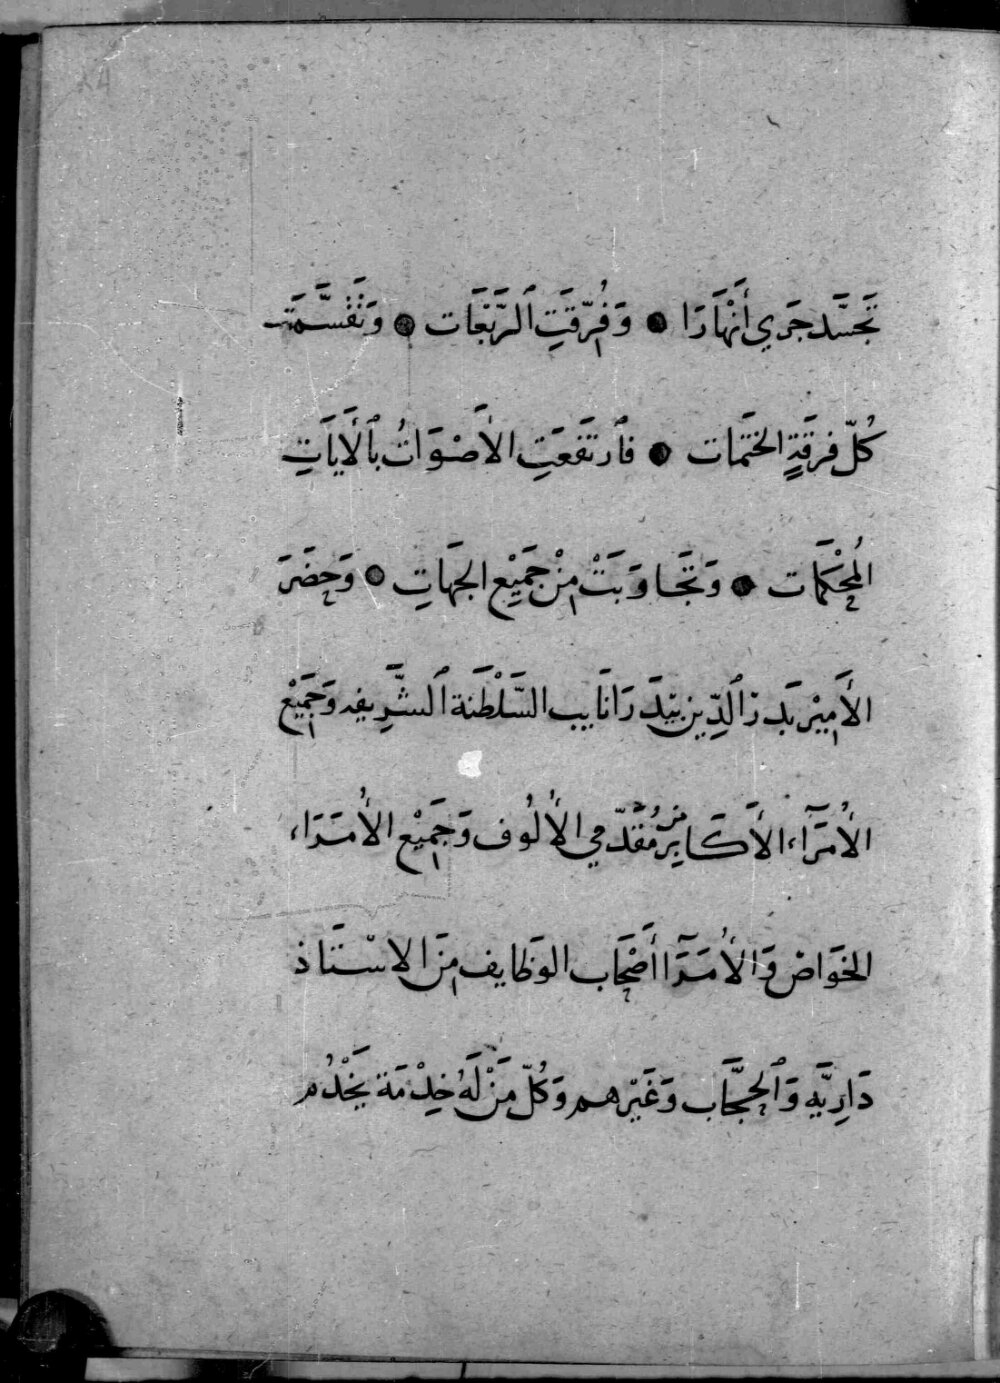 تَجَسَّد جَرَي أَنْهَارَا ● وَفُرّقَتِ ٱلرَّبَعَات ● وَتَقَسَّمَت
كُلّ فرقَةٍ الخَتَمات ● فٱرتَفَعَتِ الأَصْوَاتُ بٱلأَيَاتِ
المُحْكَمَات ● وَتَجَاوَبَتْ مِنْ جَمَيِْع الجَهَاتِ ● وَحَضَرَ
الأَمِيْر بَدرٱلدِّين بَيْدَرَا نَايب السَّلْطَنة ٱلشَّرِيفه وَجَمَِيْع
الأُمَرَآء الأَكَابِر مِن مُقَدّمي الأُلُوف وَجَمَِيْع الأُمَرَاء
الخوَاص وَالأُمَرَآ أَصْحَاب الوَظايف مِنَ الاسْتَاذ
دَارِيَّه وَٱلحجَّاب وَغَيْرهم وَكُلّ مَِنْ لَهُ خِدْمَة يَخْدُم